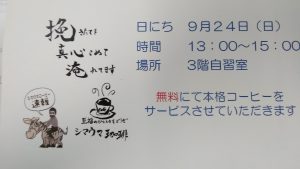 挽きたてを
真心こめて
淹れてます
至福のひとときをどうぞ
シマウマ珈琲
日にち　９月２４日（日）
時間　１３：００～１５：００
場所　３階自習室
無料にて本格コーヒーを
サービスさせていただきます